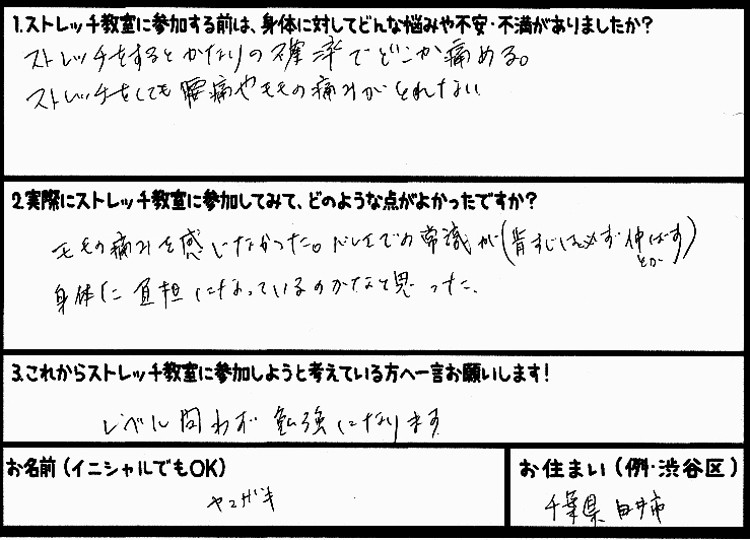 1.ストレッチ教室に参加する前は、身体に対してどんな悩みや不安・不満がありましたか?
ストレッチをするとかなりの確率でどこか痛める。
ストレッチをしても腰痛やモモの痛みがとれない
2.実際にストレッチ教室に参加してみて、どのような点がよかったですか?
モモの痛みを感じなかった。バレエでの常識が(背すじは必ず伸ばすとか)
身体に負担になっているのかなと思った。
3.これからストレッチ教室に参加しようと考えている方へ一言お願いします!
レベル問わず勉強になります
お名前(イニシャルでもOK)
ヤマガキ
お住まい(例・渋谷区)
千葉県白井市